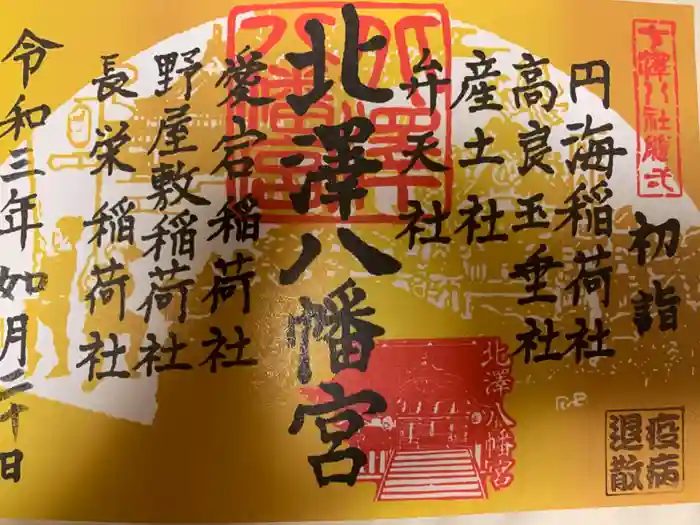 七澤八社随弌
初詣
円海稲荷社
高良玉垂社
産土社
弁天社
北澤八幡宮
愛宕稲荷社
野屋敷稲荷社
長栄稲荷社
令和三年如月二十日
北澤八幡宮
北澤八幡宮
疫病
退散